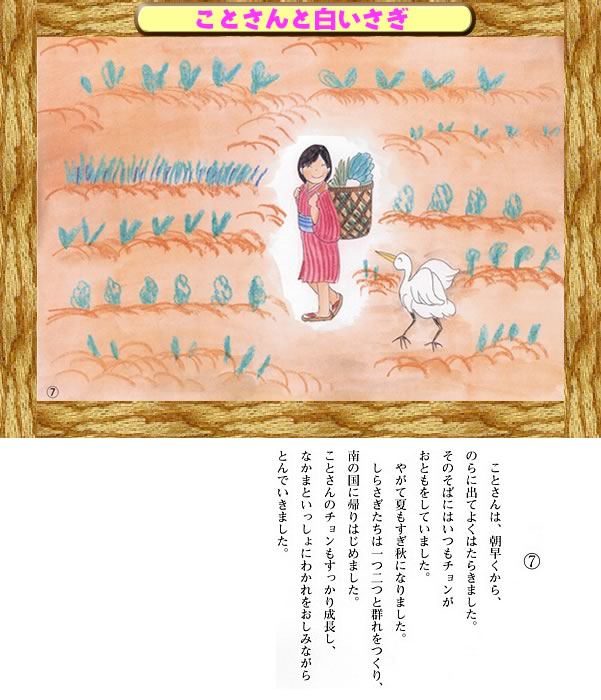 ことさんと白いさぎ
⑦
⑦
ことさんは、朝早くから、
のらに出てよくはたらきました。
そのそばにはいつもチョンが
おともをしていました。
やがて夏もすぎ秋になりました。
しらさぎたちは一つ二つと群れをつくり、
南の国に帰りはじめました。
ことさんのチョンもすっかり成長し、
なかまといっしょにわかれをおしみながら
とんでいきました。